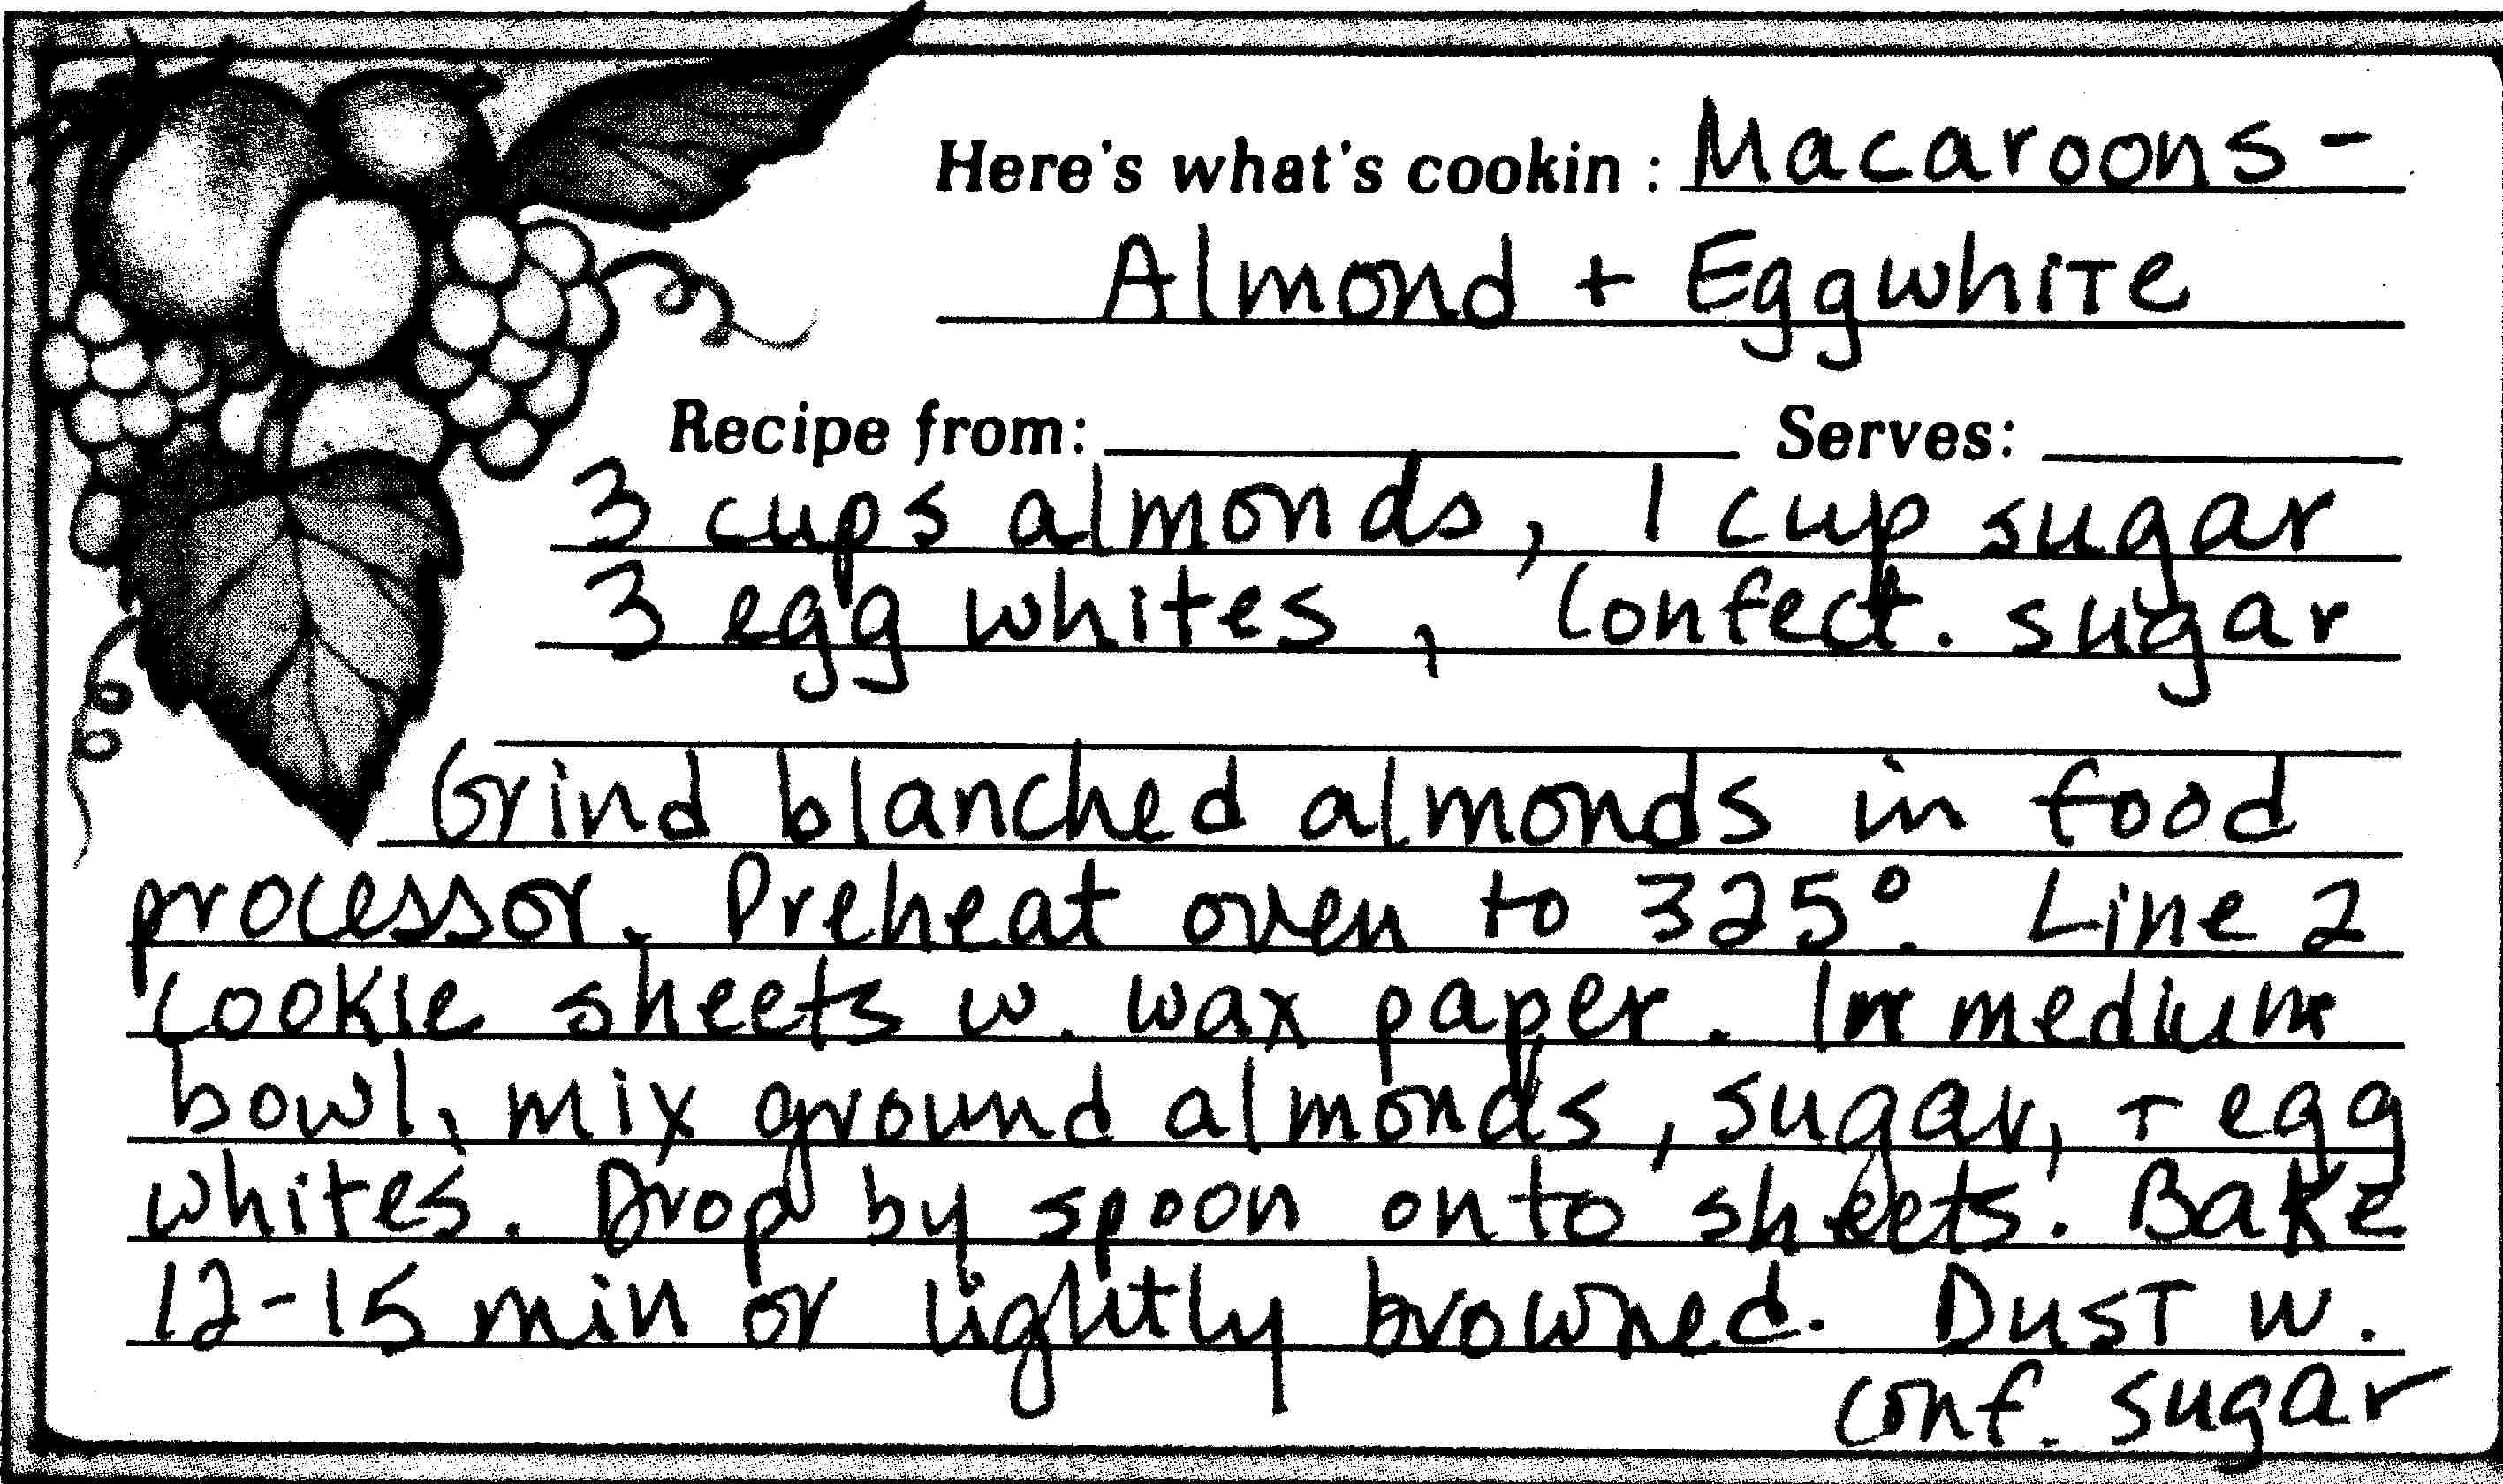 Here's what's cookin : Macaroons -
Almond + Eggwhite
Recipe from: Serves:
3 cups almonds, 1 cup sugar
3 egg whites, Confect. sugar
Grind blanched almonds in food
processor. Preheat oven to 325°. Line 2
cookie sheets w. wax paper. In medium
bowl, mix ground almonds, sugar, + egg
whites. Drop by spoon onto sheets. Bake
12-15 min or lightly browned. Dust w.
conf. sugar